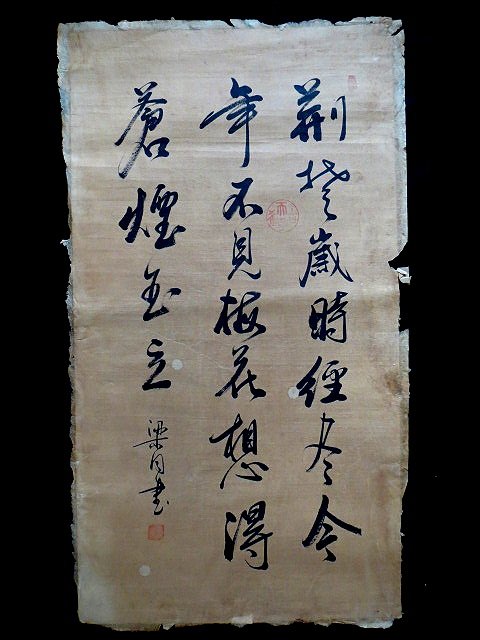 荊楚歲時經尽今
年不見梅花想得
蒼煙玉立
梁同書